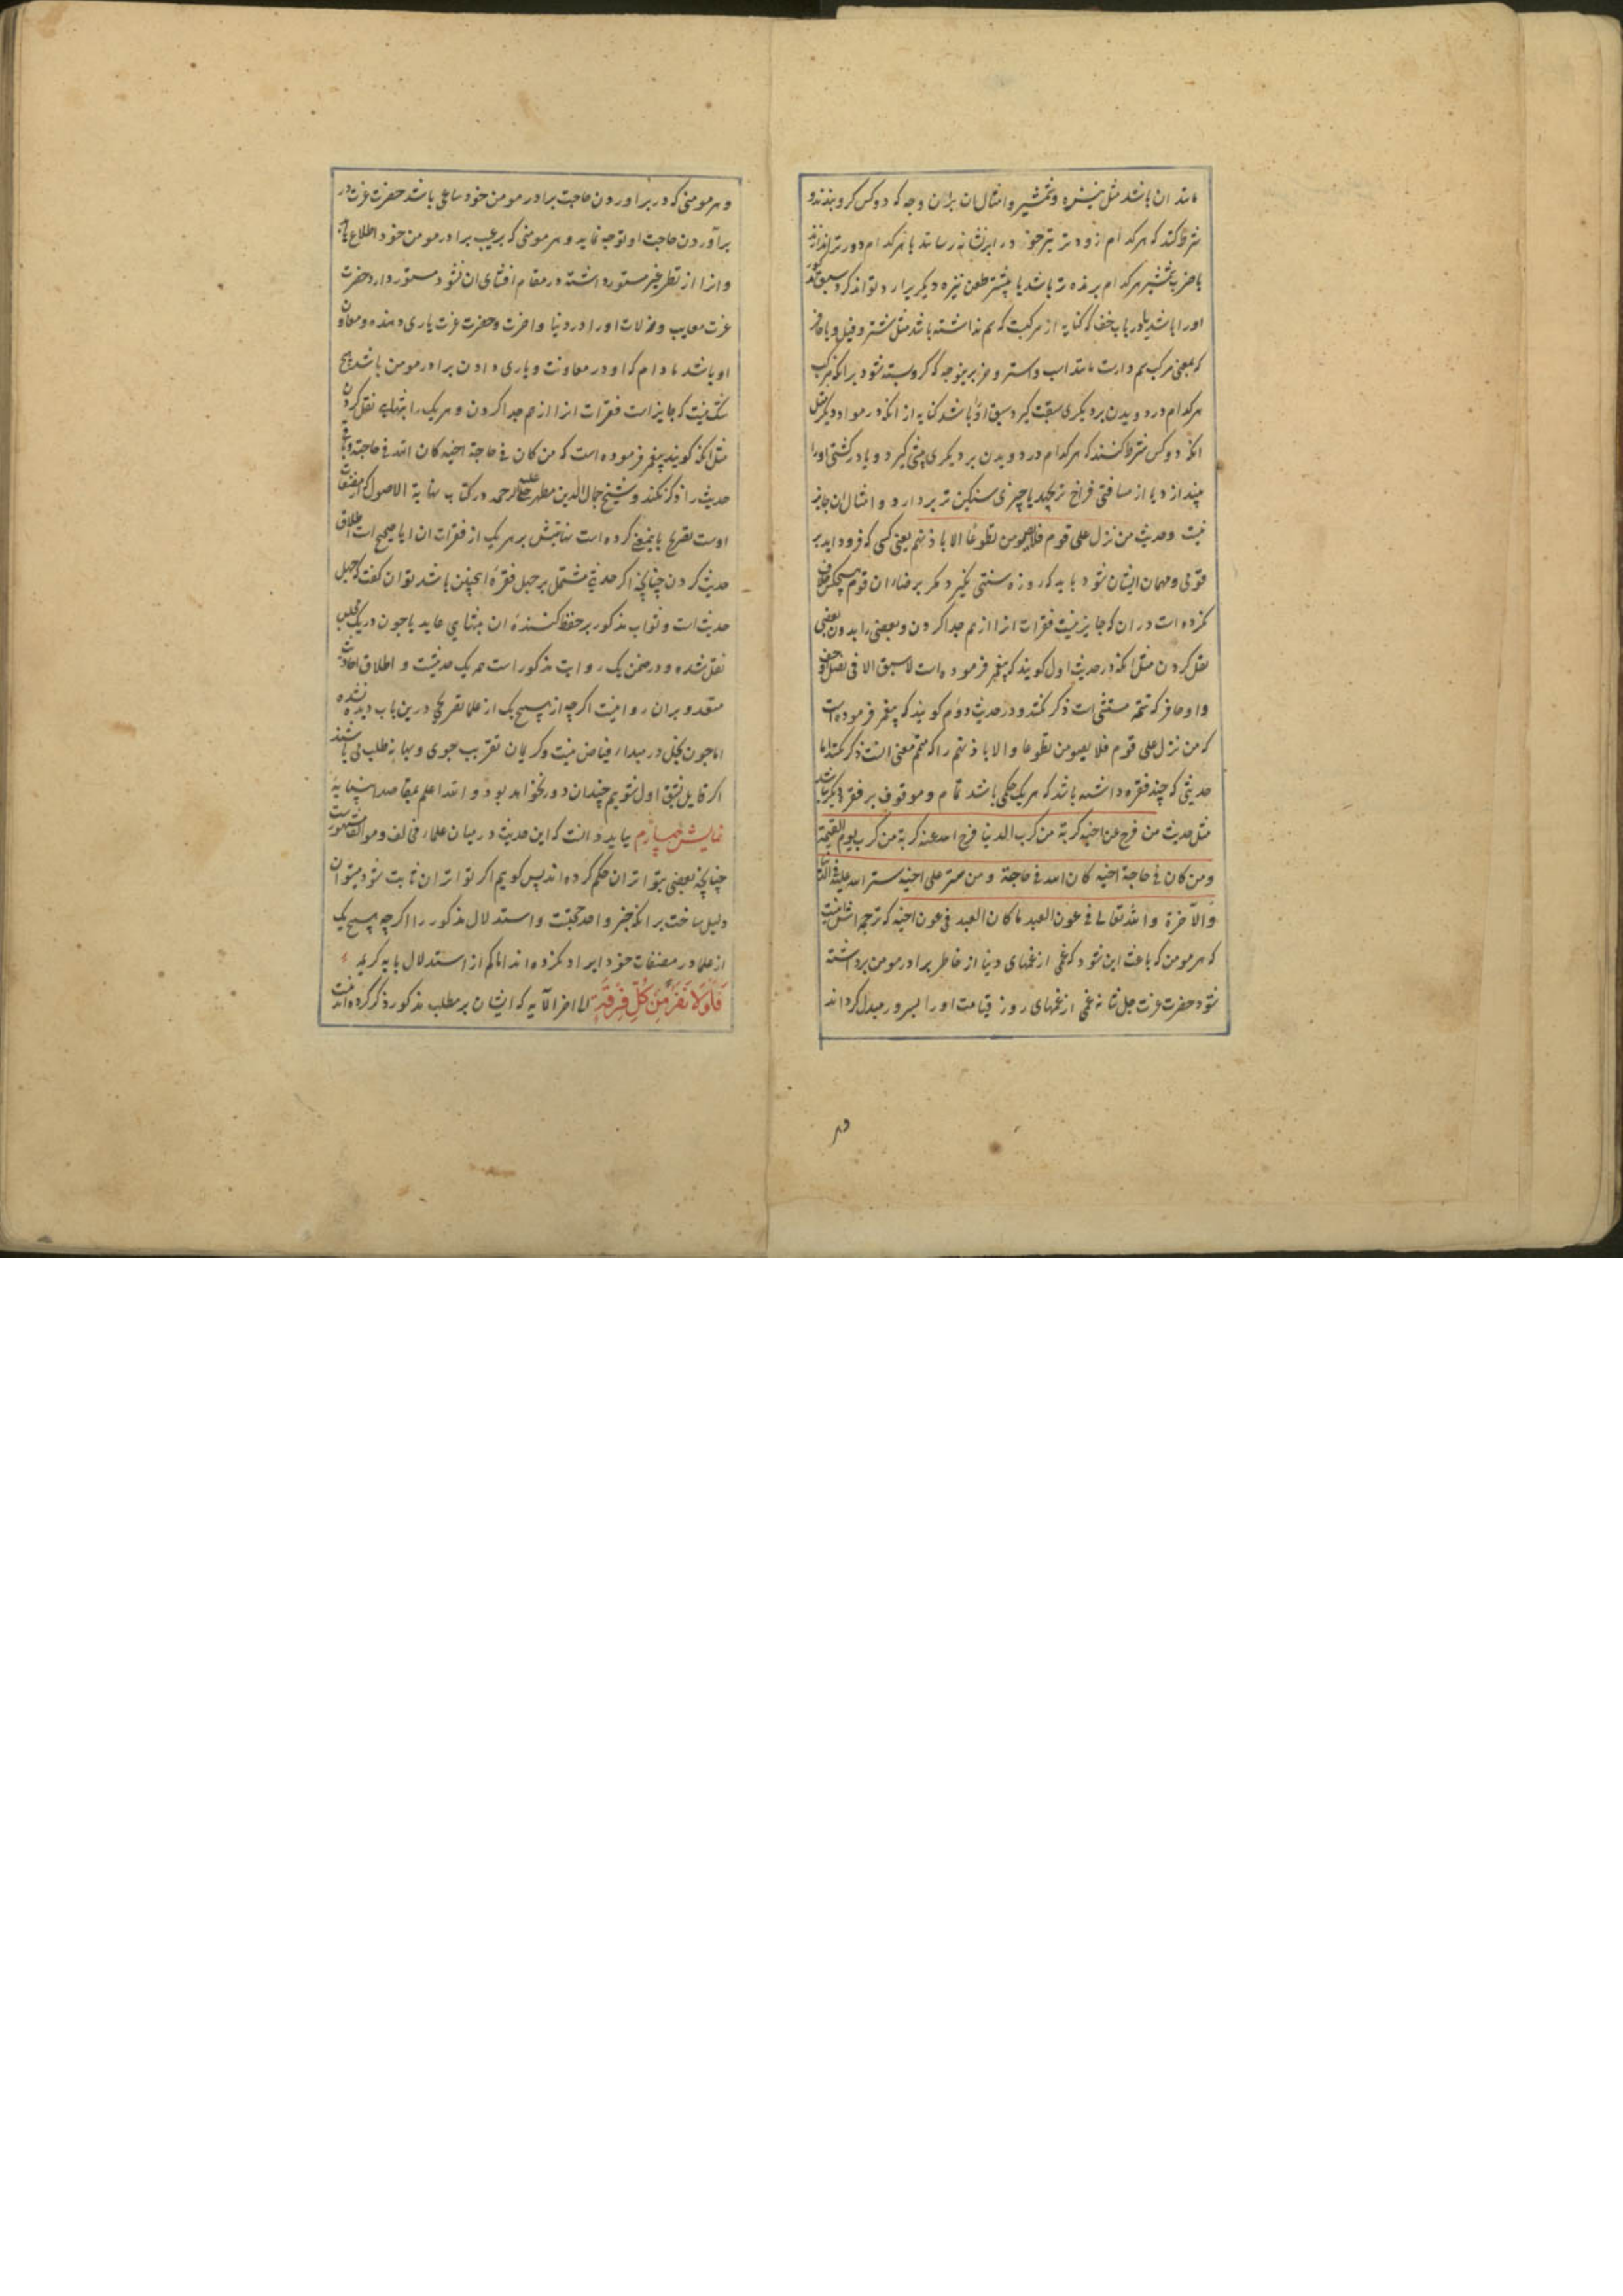 مانند ان باشد مثل نیزه و شمشیر و امثال ان بران وجه که دو کس کرو بندند و
شرط کنند که هر کدام زودتر تیر خود را بر نشانه رسانند یا هر کدام دورتر اندازند
یا ضرب شمشیر هر کدام برنده تر باشد یا پیشتر طعن نیزه دیکر برا رد تواند کرد سبق
او را باشد یا در باب خف که کنایه از مرکبست که سم نداشته باشد مثل شتر و فیل و یا حافر
که بمعنی مرکب سم دارست مانند اسب و استر و خر بر ینوجه که کرو بسته شود بر انکه مرکب
هر کدام در دویدن بر دیکری سبقت کیرد سبق او را باشد کنایه از انکه در مواد دیکر مثل
انکه دو کس شرط کنند که هر کدام در دویدن بر دیکری پیشی کیرد و یا در کشتی او را
بیندازد یا از مسافتی فراخ تر بجهد یا چیزی سنکین تر بردارد و امثال ان جایز
نیست و حدیث من نزل علی قوم فلا یصومن تطوعا الا باذنهم یعنی کسی که فرود اید بر
قومی و مهمان ایشان شود باید که روزه سنتی نکیرد مکر برضاء ان قوم هیچکس خلاف
نکرده است در ان که جایز نیست فقرات انرا از هم جدا کردن و بعضی را بدون بعضی
نقل کردن مثل انکه در حدیث اول کویند که پیغمبر فرموده است لا سبق الا فی نصل او خف
و او حافر که تتمه مستثنی است ذکر نکنند و در حدیث دوم کویند که پیغمبر فرموده است
که من نزل علی قوم فلا یصومن تطوعا و الا باذنهم را که متمم معنی انست ذکر نکنند اما
حدیثی که چند فقره داشته باشد که هر یک حکمی باشد تمام و موقوف بر فقره دیکر نباشد
مثل حدیث من فرج عن اخیه کربة من کرب الدنیا فرج الله عنه کربة من کرب یوم القیمة
و من کان فی حاجة اخیه کان الله فی حاجته و من ستر علی اخیه ستر الله علیه فی الدنیا
و الآخرة و الله تعالی فی عون العبد ما کان العبد فی عون اخیه که ترجمه اش اینست
که هر مومن که باعث این شود که غمی از غمهای دنیا از خاطر برادر مومن برداشته
شود حضرت عزت جل شانه غمی از غمهای روز قیامت او را بسرور مبدل کرداند
و هر
و هر مومنی که در براوردن حاجت برادر مومن خود ساعی باشد حضرت عزت در
برآوردن حاجت او توجه نماید و هر مومنی که بر عیب برادر مومن خود اطلاع یابد
و انرا از نظر غیر مستور داشته در مقام افشای ان نشود مستور دارد حضرت
عزت معایب و مزلات او را در دنیا و اخرت و حضرت عزت یاری دهنده و معاون
او باشد مادام که او در معاونت و یاری دادن برادر مومن باشد هیچ
شک نیست که جایز است فقرات انرا از هم جدا کردن و هر یک را بتنهایی نقل کردن
مثل انکه کویند پیغمبر فرموده است که من کان فی حاجة اخیه کان الله فی حاجته و باقی
حدیث را ذکر نکنند و شیخ جمال الدین مطهر حلی علیه الرحمه در کتاب نهایة الاصول که از مصنفات
اوست تصریح باینمعنی کرده است نهایتش بر هر یک از فقرات ان ایا صحیح است اطلاق
حدیث کردن چنانچه اکر حدیثی مشتمل بر چهل فقره اینچنین باشد توان کفت که چهل
حدیث است و ثواب مذکور بر حفظ کننده ان بتنهایی عاید یا چون در یک مجلس
نقل شده و در ضمن یک روایت مذکور است همه یک حدیثست و اطلاق احادیث
متعدد بران روا نیست اکرچه از هیچ یک از علما تصریحی درین باب دیده نشده
اما چون بخل در مبداء فیاض نیست و کریمان تقریب جوی و بهانه طلب می باشند
اکر قایل بشق اول شویم چندان دور نخواهد بود و الله اعلم بمقاصد انبیایه
نمایش چهارم بباید دانست که این حدیث در میان علماء مخالف و موالف مشهور است
چنانچه بعضی بتواتر ان حکم کرده اند پس کویم اکر تواتر ان ثابت شود میتوان
دلیل ساخت بر انکه خبر واحد حجتست و استدلال مذکور را اکرچه هیچ یک
از علما در مصنفات خود ایراد نکرده اند اما کم از استدلال بایه کریمه
فَلَوْلَا نَفَرَ مِنْ كُلِّ فِرْقَةٍ الی اخر الآیه که ایشان بر مطلب مذکور ذکر کرده اند نیست